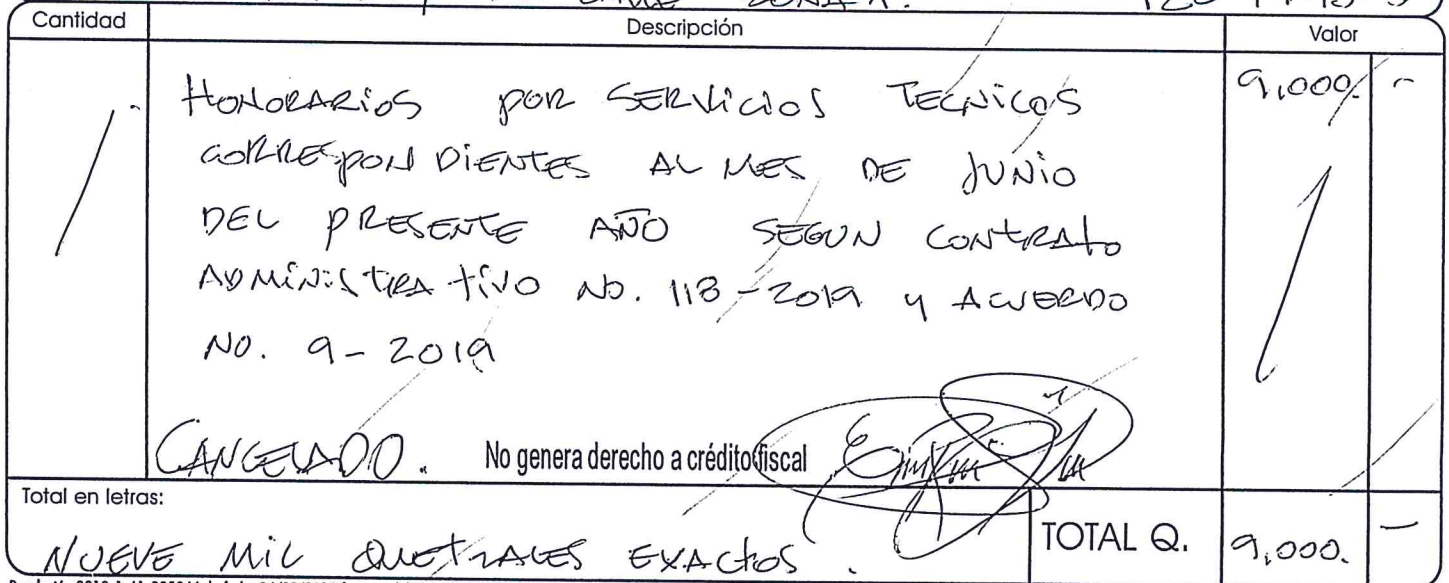 Cantidad Descripción Valor
HONORARIOS POR SERVICIOS TECNICOS 9,000. -
CORRESPONDIENTES AL MES DE JUNIO
DEL PRESENTE AÑO SEGUN CONTRATO
ADMINISTRATIVO NO. 118-2019 Y ACUERDO
NO. 9-2019
CANCELADO. No genera derecho a crédito fiscal
Total en letras:
NUEVE MIL QUETZALES EXACTOS. TOTAL Q. 9,000. -